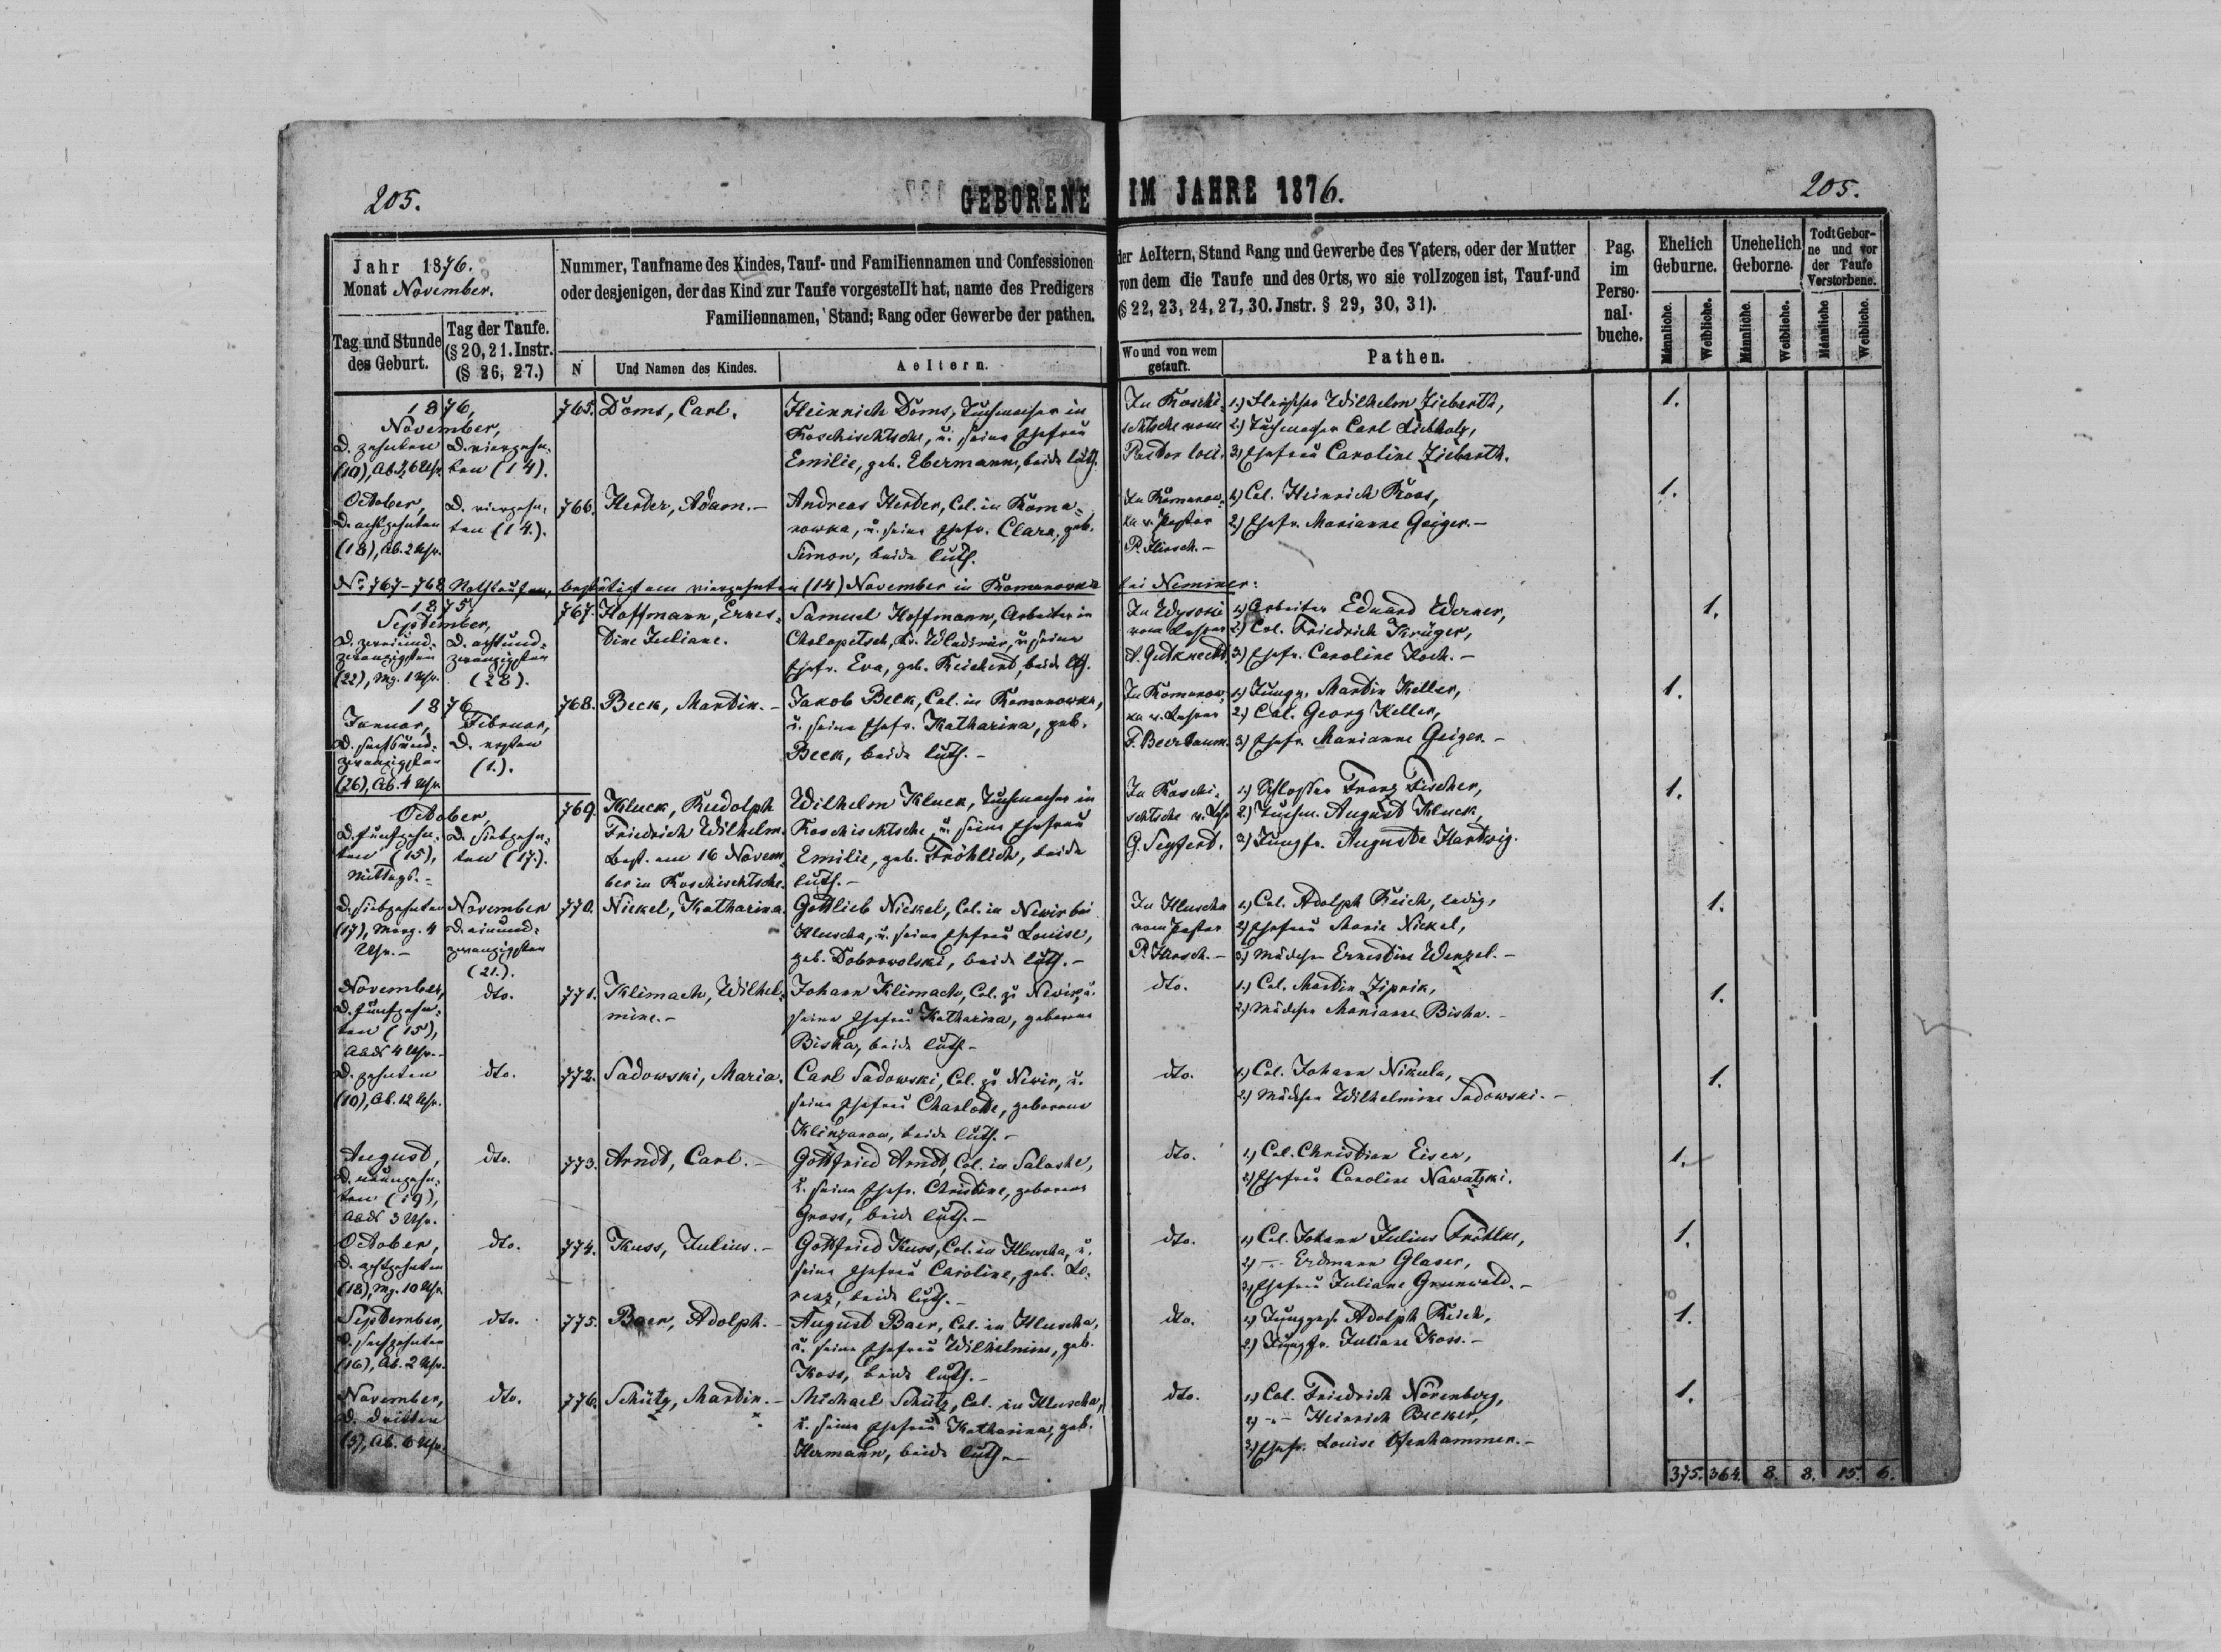 205.
GEBORENE IM JAHRE 1876.
205.
Jahr 1876.
Monat November.
Tag und Stunde
des Geburt.
Tag der Taufe.
(§ 20, 21. Instr.
(§ 26, 27.)
Nummer, Taufname des Kindes, Tauf- und Familiennamen und Confessionen
oder desjenigen, der das Kind zur Taufe vorgestellt hat, name des Predigers
Familiennamen, Stand; Rang oder Gewerbe der pathen.
N
Und Namen des Kindes.
Aeltern.
der Aeltern, Stand Rang und Gewerbe des Vaters, oder der Mutter
von dem die Taufe und des Orts, wo sie vollzogen ist, Tauf-und
(§ 22, 23, 24, 27, 30. Jnstr. § 29, 30, 31).
Wo und von wem
getauft.
Pathen.
Pag.
im
Perso-
nal-
buche.
Ehelich
Geburne.
Unehelich
Geborne.
Todt Gebor-
ne und vor
der Taufe
Verstorbene.
Männliche.
Weibliche.
Männliche.
Weibliche.
Männliche
Weibliche.
1876,
November,
D. zehnten
(10), Ab. 6 Uhr.
D. vierzehn-
ten (14).
765.
Doms, Carl.
Heinrich Doms, Tuchmacher in
Koschischtsche, u. seine Ehefrau
Emilie, geb. Ebermann, beide luth.
In Koschi-
schtsche vom
Pastor loci.
1.) Fleischer Wilhelm Zieberth,
2.) Tuchmacher Carl Liebholz,
3.) Ehefrau Caroline Zieberth.
1.
October,
D. achtzehnten
(18), Ab. 2 Uhr.
D. vierzehn-
ten (14.).
766.
Herder, Adam.-
Andreas Herder, Col. in Roma-
nowka, u. seine Ehefr. Clara, geb.
Simon, beide luth.
In Romanow-
ka v. Pastor
P. Hirsch.-
1.) Col. Heinrich Roos,
2.) Ehefr. Marianne Geiger.-
1.
No 767-768 Nothtaufen, bestätigt am vierzehnten (14) November in Romanowka
1875,
September,
D. zweiund-
zwanzigsten
(22), Mg. 1 Uhr.
D. achtund-
zwanzigsten
(28).
767.
Hoffmann, Ernes-
tine Juliane.
Samuel Hoffmann, Arbeiter in
Cholopetsch, Kr. Wladimir, u. seine
Ehefr. Eva, geb. Reichert, beide lth.
In Wysoki
vom Lehrer
A. Gutknecht.
1.) Arbeiter Eduard Werner,
2.) Col. Friedrich Krüger,
3.) Ehefr. Caroline Koch.-
1.
1876
Januar,
D. sechsund-
zwanzigsten
(26), Ab. 4 Uhr
Februar,
D. ersten
(1.).
768.
Beck, Martin.-
Jakob Beck, Col. in Romanowka,
u. seine Ehefr. Katharina, geb.
Beck, beide luth.-
In Romanow-
ka v. Lehrer
F. Beerbaum.
1.) Jungg. Martin Keller,
2.) Col. Georg Keller,
3.) Ehefr. Marianne Geiger.-
1.
October,
D. fünfzehn-
ten (15),
Mittags.-
D. siebzehn-
ten (17.).
769.
Kluck, Rudolph
Friedrich Wilhelm.
Best. am 16 Novem-
ber in Koschischtsche.
Wilhelm Kluck, Tuchmacher in
Koschischtsche, u. seine Ehefrau
Emilie, geb. Fröhlich, beide
luth.-
In Koschi-
schtsche v. Lehr
G. Segfert.
1.) Schlosser Franz Fischer,
2.) Tuchm. August Kluck,
3.) Jungfr. Auguste Hartwig.
1.
D. siebzehnten
(17), Morg. 4
Uhr.-
November
D. einund-
zwanzigsten
(21.).
770.
Nickel, Katharina
Gottlieb Nickel, Col. in Newir bei
Hluscha, u. seine Ehefrau Louise,
geb. Dobrowolski, beide luth.-
In Hluscha
vom Pastor
P. Hirsch.-
1.) Col. Adolph Reich, ledig,
2.) Ehefrau Marie Nickel,
3.) Mädchen Ernestine Wenzel.-
1.
November,
D. fünfzehn-
ten (15),
Abds 4 Uhr.-
dto.
771.
Klimach, Wilhel-
mine.-
Johann Klimach, Col. zu Newir, u.
seine Ehefrau Katharina, geborene
Biska, beide luth.-
dto.
1.) Col. Martin Ziprik,
2.) Mädchen Marianne Biska.-
1.
D. zehnten
(10), Ab. 12 Uhr.
dto.
772.
Sadowski, Maria.
Carl Sadowski, Col. zu Newir, u.
seine Ehefrau Charlotte, geborene
beide luth.-
dto.
1.) Col. Johann Nikula,
2.) Mädchen Wilhelmine Sadowski.-
1.
August,
D. neunzehn-
ten (19),
Abds 3 Uhr.
dto.
773.
Arndt, Carl.-
Gottfried Arndt, Col. in Salashe,
u. seine Ehefr. Christine, geborene
Gross, beide luth.-
dto.
1.) Col. Christian Eisen,
2.) Ehefrau Caroline Nawatzki.
1.
October,
D. achtzehnten
(18), Mg. 10 Uhr
dto.
774.
Kuss, Julius.-
Gottfried Kuss, Col. in Hluscha, u.
seine Ehefrau Caroline, geb. Lo-
renz, beide luth.-
dto.
1.) Col. Johann Julius
2.) -"- Erdmann Glaser,
3.) Ehefrau Juliane Grunwald.-
1.
September,
D. sechzehnten
(16), Ab. 2 Uhr.
dto.
775.
Baer, Adolph.-
August Baer, Col. in Hluscha,
u. seine Ehefrau Wilhelmine, geb.
Koss, beide luth.-
dto.
1.) Junggs. Adolph Reich,
2.) Jungfr. Juliane Koss.-
1.
November,
D. dritten
(3), Ab. 6 Uhr.
dto.
776.
Schütz, Martin.-
Michael Schütz, Col. in Hluscha,
u. seine Ehefrau Katharina, geb.
Hermann, beide luth.-
dto.
1.) Col. Friedrich Nörenberg,
2.) -"- Heinrich Becker,
3.) Ehefr. Louise Ofenhammer.-
1.
375. 364. 8. 8. 15. 6.